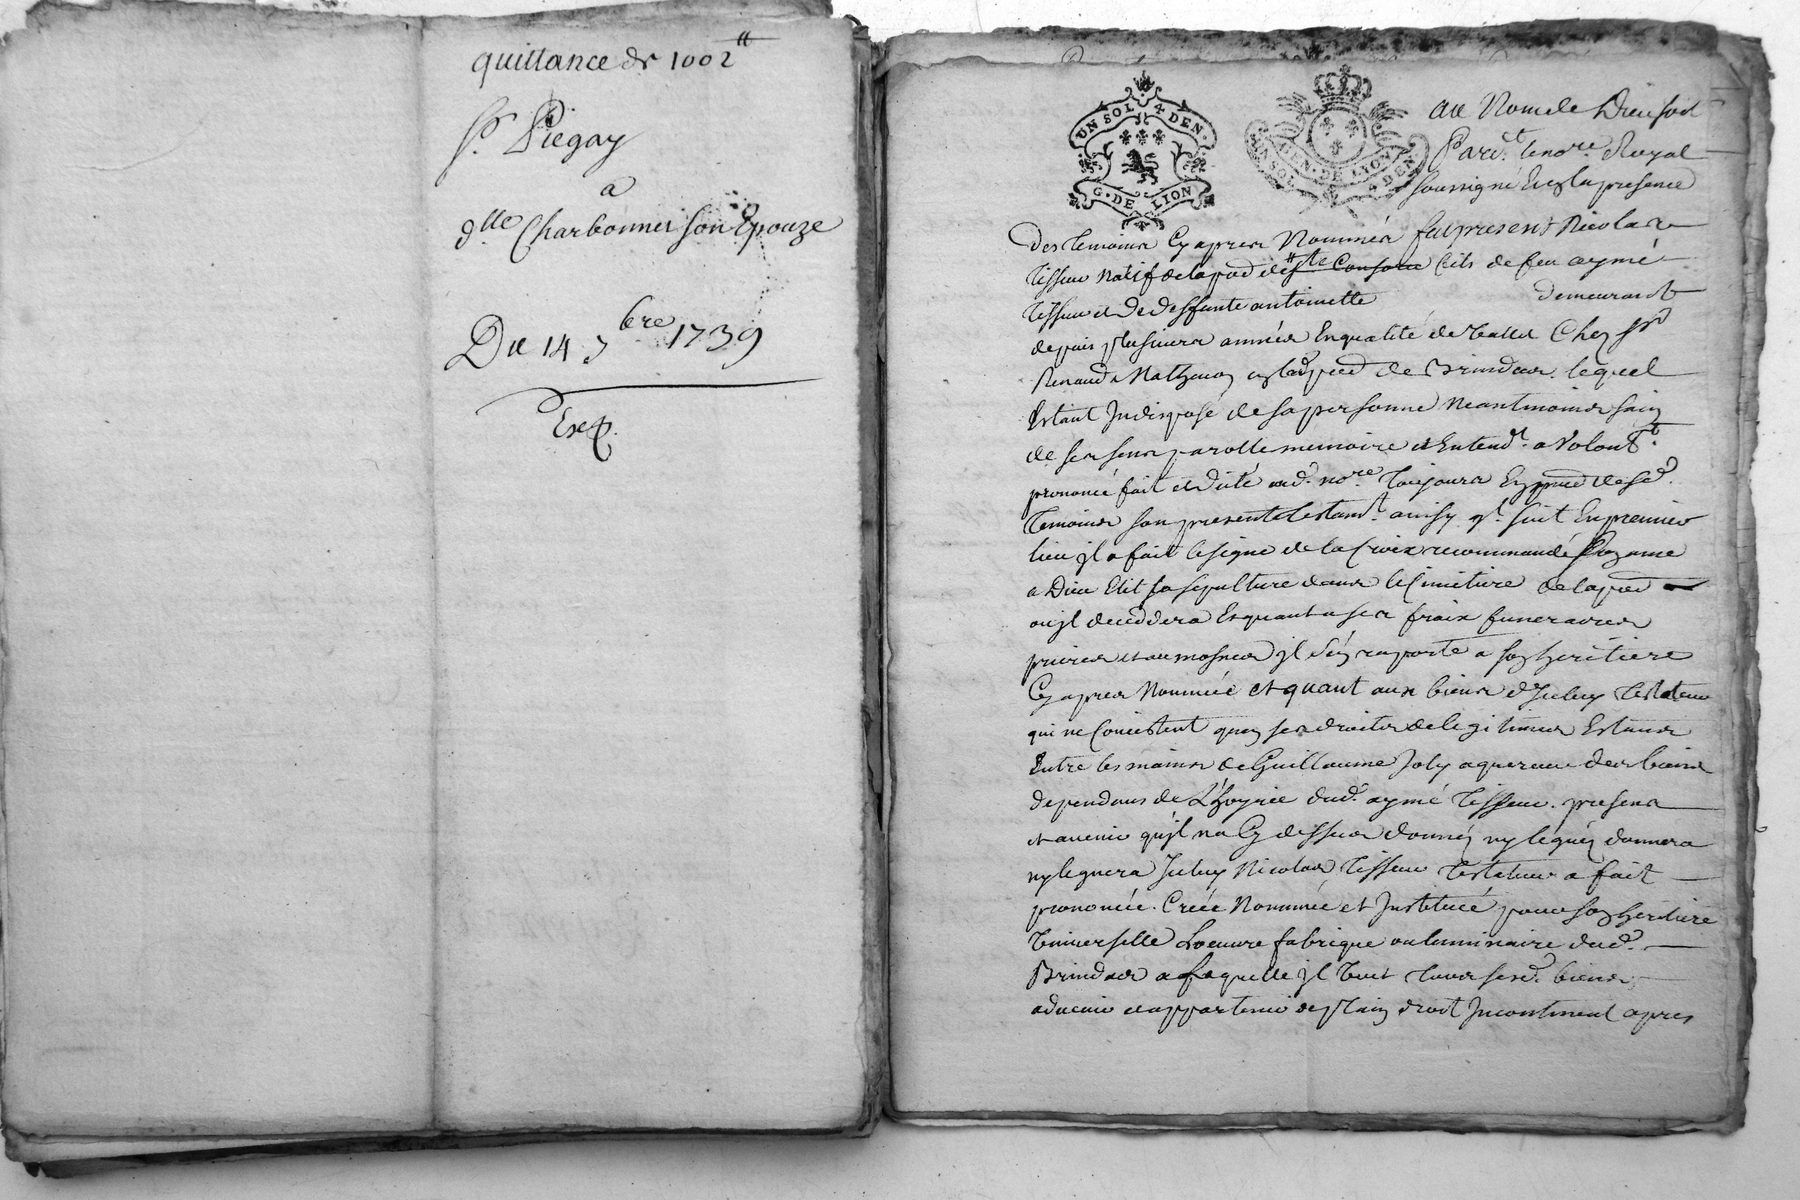 quittance de 1002 ^tt
Sr. Piegay
a
dlle Charbonnet son Epouze
Du 14 7bre 1739
Exp.
UN SOL 4 DEN.
G. DE LION
UN SOL 4 DEN
GEN. DE LYON
au Nom de Dieu soit
Pardt. le nore. Royal
soussigné En la presence
Des temoins Cy apres Nommés fut present Nicolas
Tisseur natif de la par de ste Consorce fils de feu aymé
Tisseur et de deffunte antoinette demeurant
depuis plusieurs années En qualité de Vallet Chez sr
Renaud Mathieu en lad. par de Brindas. lequel
Estant Indisposé de sa personne neantmoins sain
de ses sens parolle memoire et Entendt. a Volontt.
prononcé fait et dicté aud. nore. toujours En pnce desd.
temoins son present testamt. ainsy qt. suit En premier
lieu il a fait le signe de la Croix recommandé son ame
a Dieu Elit sa sepulture dans le Cimetiere de la par
ou il deceddera Et quant a ses fraix funeraires
prieres et aumosnes il s'en raporte a son heritiere
Cy apres Nommée et quant aux biens d'Iceluy testateur
qui ne Concistent qu'en ses droits de legitimes Estants
Entre les mains de Guillaume Joly aquereur des biens
dependans de L'hoyrie dud. aymé Tisseur. presens
et avenir qu'il na Cy dessus donnés ny legués donnera
ny leguera Iceluy Nicolas Tisseur testateur a fait
prononcée. Créée Nommée et Instituée pour son heritiere
Universelle Loeuvre fabrique ou luminaire dud.
Brindas a laquelle il Veut tous sesd. biens
advenir et appartenir de plain droit Incontinent apres